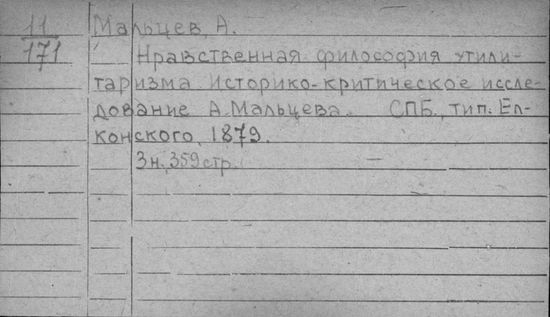 11 Мальцев, А.
171 Нравственная философия утили-
таризма Историко-критическое иссле-
дование А. Мальцева. СПБ., тип. Ел-
конского, 1879.
3 н., 359 стр. —